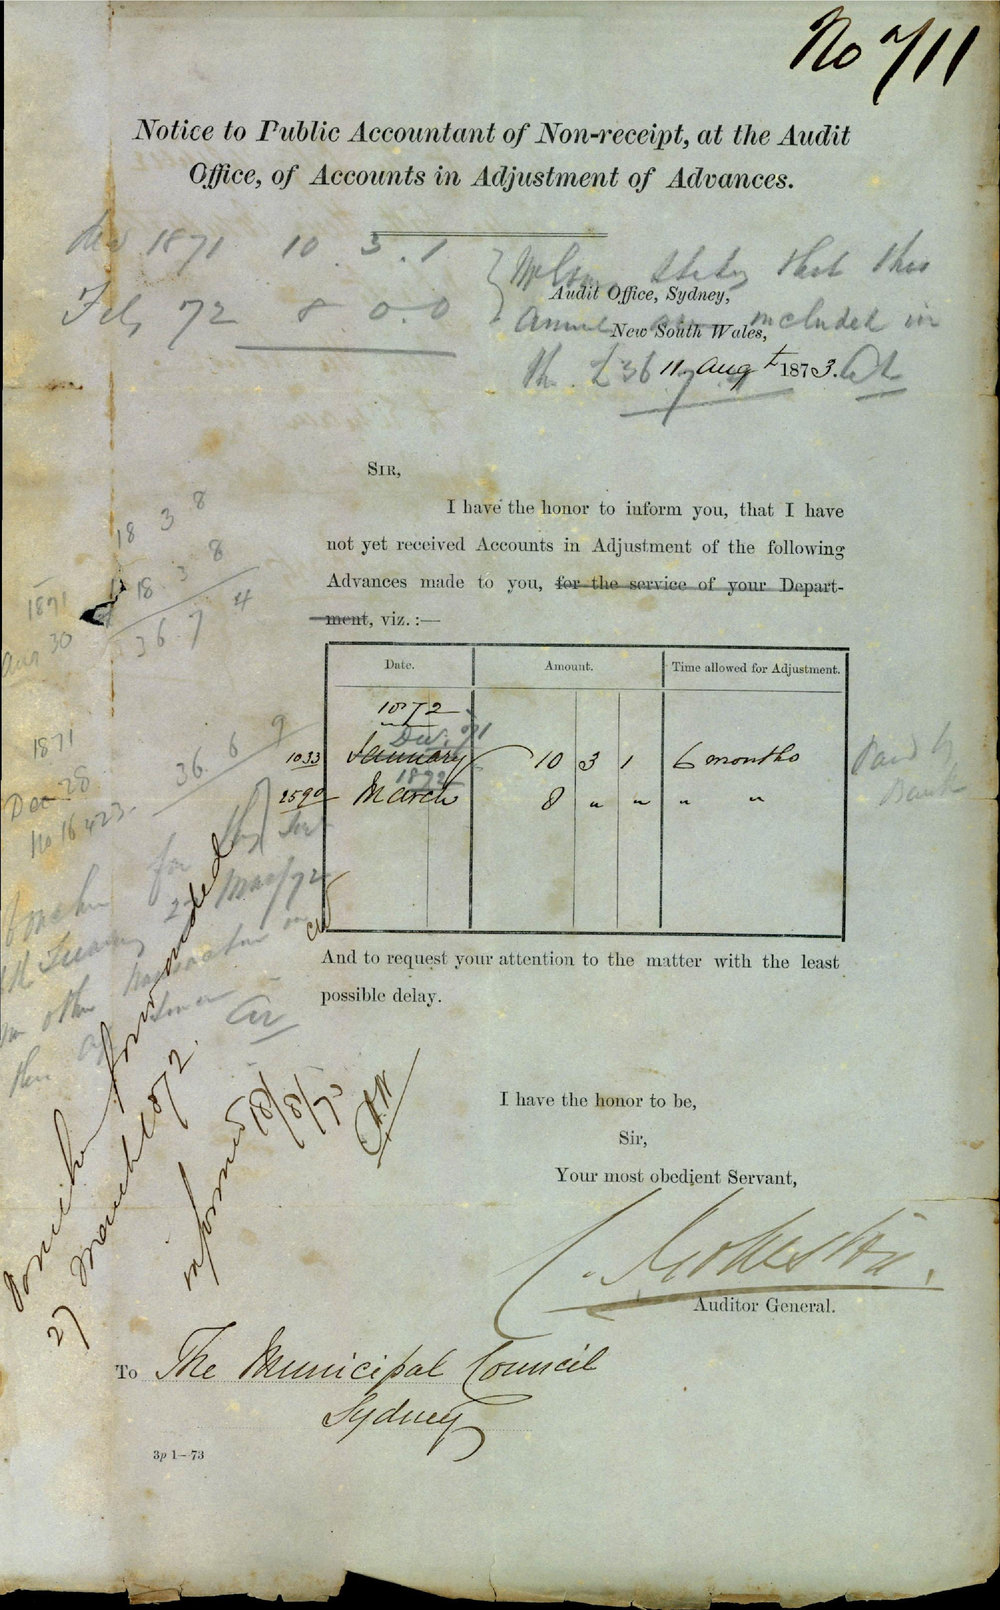 No 711
Notice to Public Accountant of Non-receipt, at the Audit
Office, of Accounts in Adjustment of Advances.
1871 10 . 3 . 1
Feb 72 8 0.0
that this
Audit Office, Sydney,
included in
New South Wales,
£36
11 Augt 1873.
SIR,
I have the honor to inform you, that I have
not yet received Accounts in Adjustment of the following
Advances made to you, for the service of your Depart-
ment, viz. :—
18 3 8
18 3 8
36 7 4
1871
30
Date. Amount. Time allowed for Adjustment.
1872
Dec. 71
1033 January 10 3 1 6 months
1872
2590 March 8 " " " "
Paid by
Bank
36 6 9
1871
Dec 28
No 16423
for
27 March 72
And to request your attention to the matter with the least
possible delay.
forwarded
27 March 1872.
informed 18/8/73
I have the honor to be,
Sir,
Your most obedient Servant,
Auditor General.
To The Municipal Council
Sydney
3p 1–73